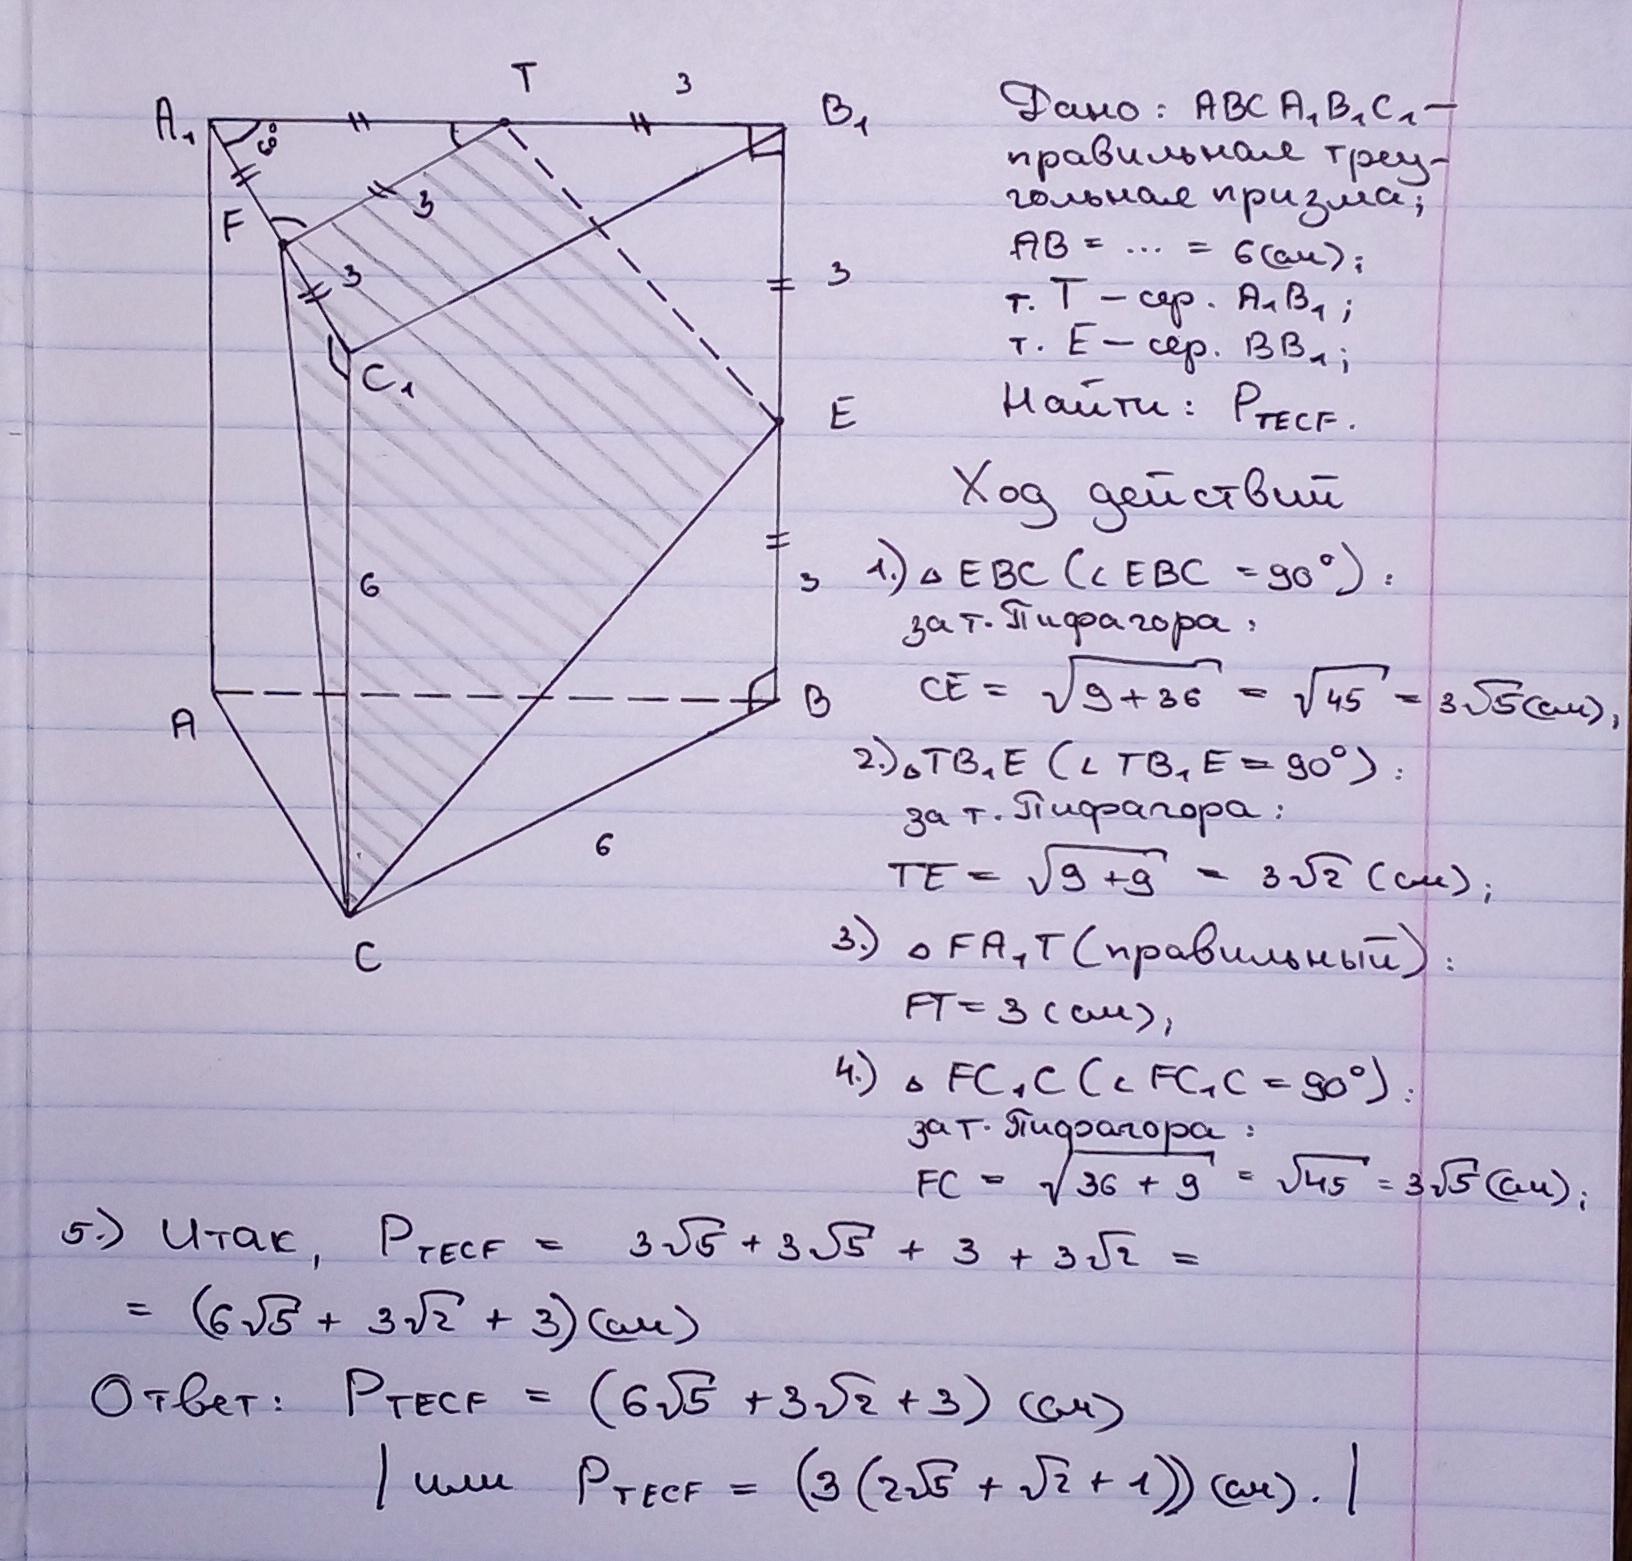 T
3
A₁
60°
B₁
F
3
3
3
C₁
E
6
3
A
B
6
C
Дано: ABCA₁B₁C₁ –
правильная треу-
гольная призма;
AB = ... = 6(см);
т. T – сер. A₁B₁;
т. E – сер. BB₁;
Найти: P_TECF.
Ход действий
1.) △ EBC (∠EBC = 90°):
за т. Пифагора:
CE = √(9+36) = √45 = 3√5(см);
2.) △TB₁E (∠TB₁E = 90°):
за т. Пифагора:
TE = √(9+9) = 3√2 (см);
3.) △ FA₁T (правильный):
FT = 3 (см);
4.) △ FC₁C (∠FC₁C = 90°):
за т. Пифагора:
FC = √(36+9) = √45 = 3√5(см);
5.) Итак, P_TECF = 3√5 + 3√5 + 3 + 3√2 =
= (6√5 + 3√2 + 3)(см)
Ответ: P_TECF = (6√5 + 3√2 + 3) (см)
| или P_TECF = (3(2√5 + √2 + 1))(см). |